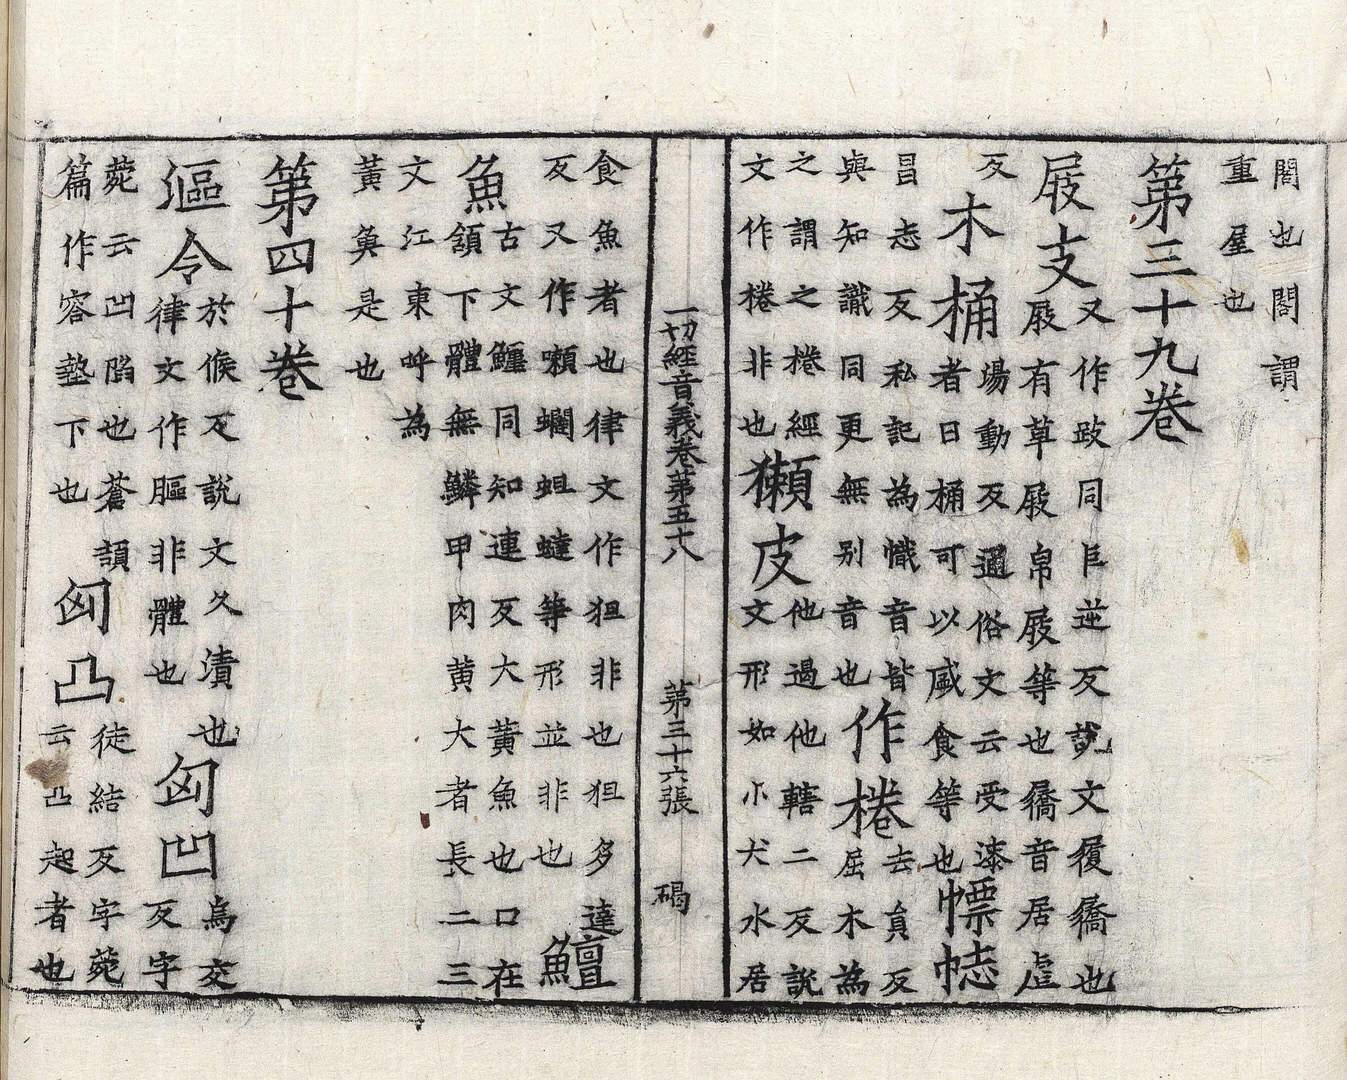 閣也閣謂
重屋也
第三十九卷
屐支又作跂同巨逆反說文履屩也
屐有草屐帛屐等也屩音居虐
反
木桶湯動反通俗文云受漆
者曰桶可以盛食等也幖誌
昌志反私記為幟音皆去貟反
與知識同更無別音也作棬屈木為
之謂之棬經他過他轄二反說
文作棬非也獺皮文形如小犬水居
一切經音義卷第五十八 第三十六張 碣
食魚者也律文作狚非也狚多達
反又作𡂖蠾蛆蟽等形並非也鱣
魚古文鱷同知連反大黃魚也口在
頷下體無鱗甲肉黃大者長二三
文江東呼為
黃魚是也
第四十卷
漚令於候反說文久漬也
律文作膒非體也匈凹烏交
反字
苑云凹陷也蒼頡
篇作容墊下也匈凸徒結反字苑
云凸起者也